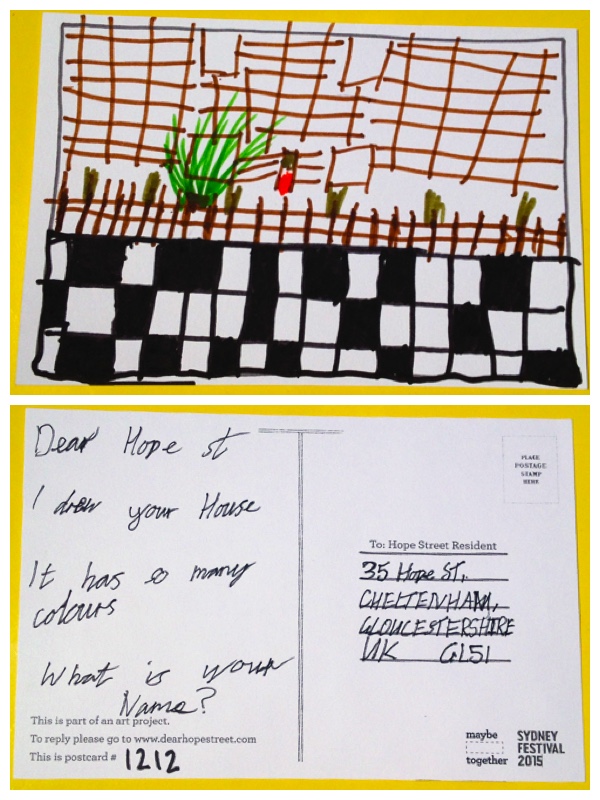 Dear Hope st
I drew your House
It has so many
colours
What is your
Name?
This is part of an art project.
To reply please go to www.dearhopestreet.com
This is postcard # 1212
PLACE
POSTAGE
STAMP
HERE
To: Hope Street Resident
35 Hope St,
CHELTENHAM,
GLOUCESTERSHIRE
UK GL51
maybe
together
SYDNEY
FESTIVAL
2015